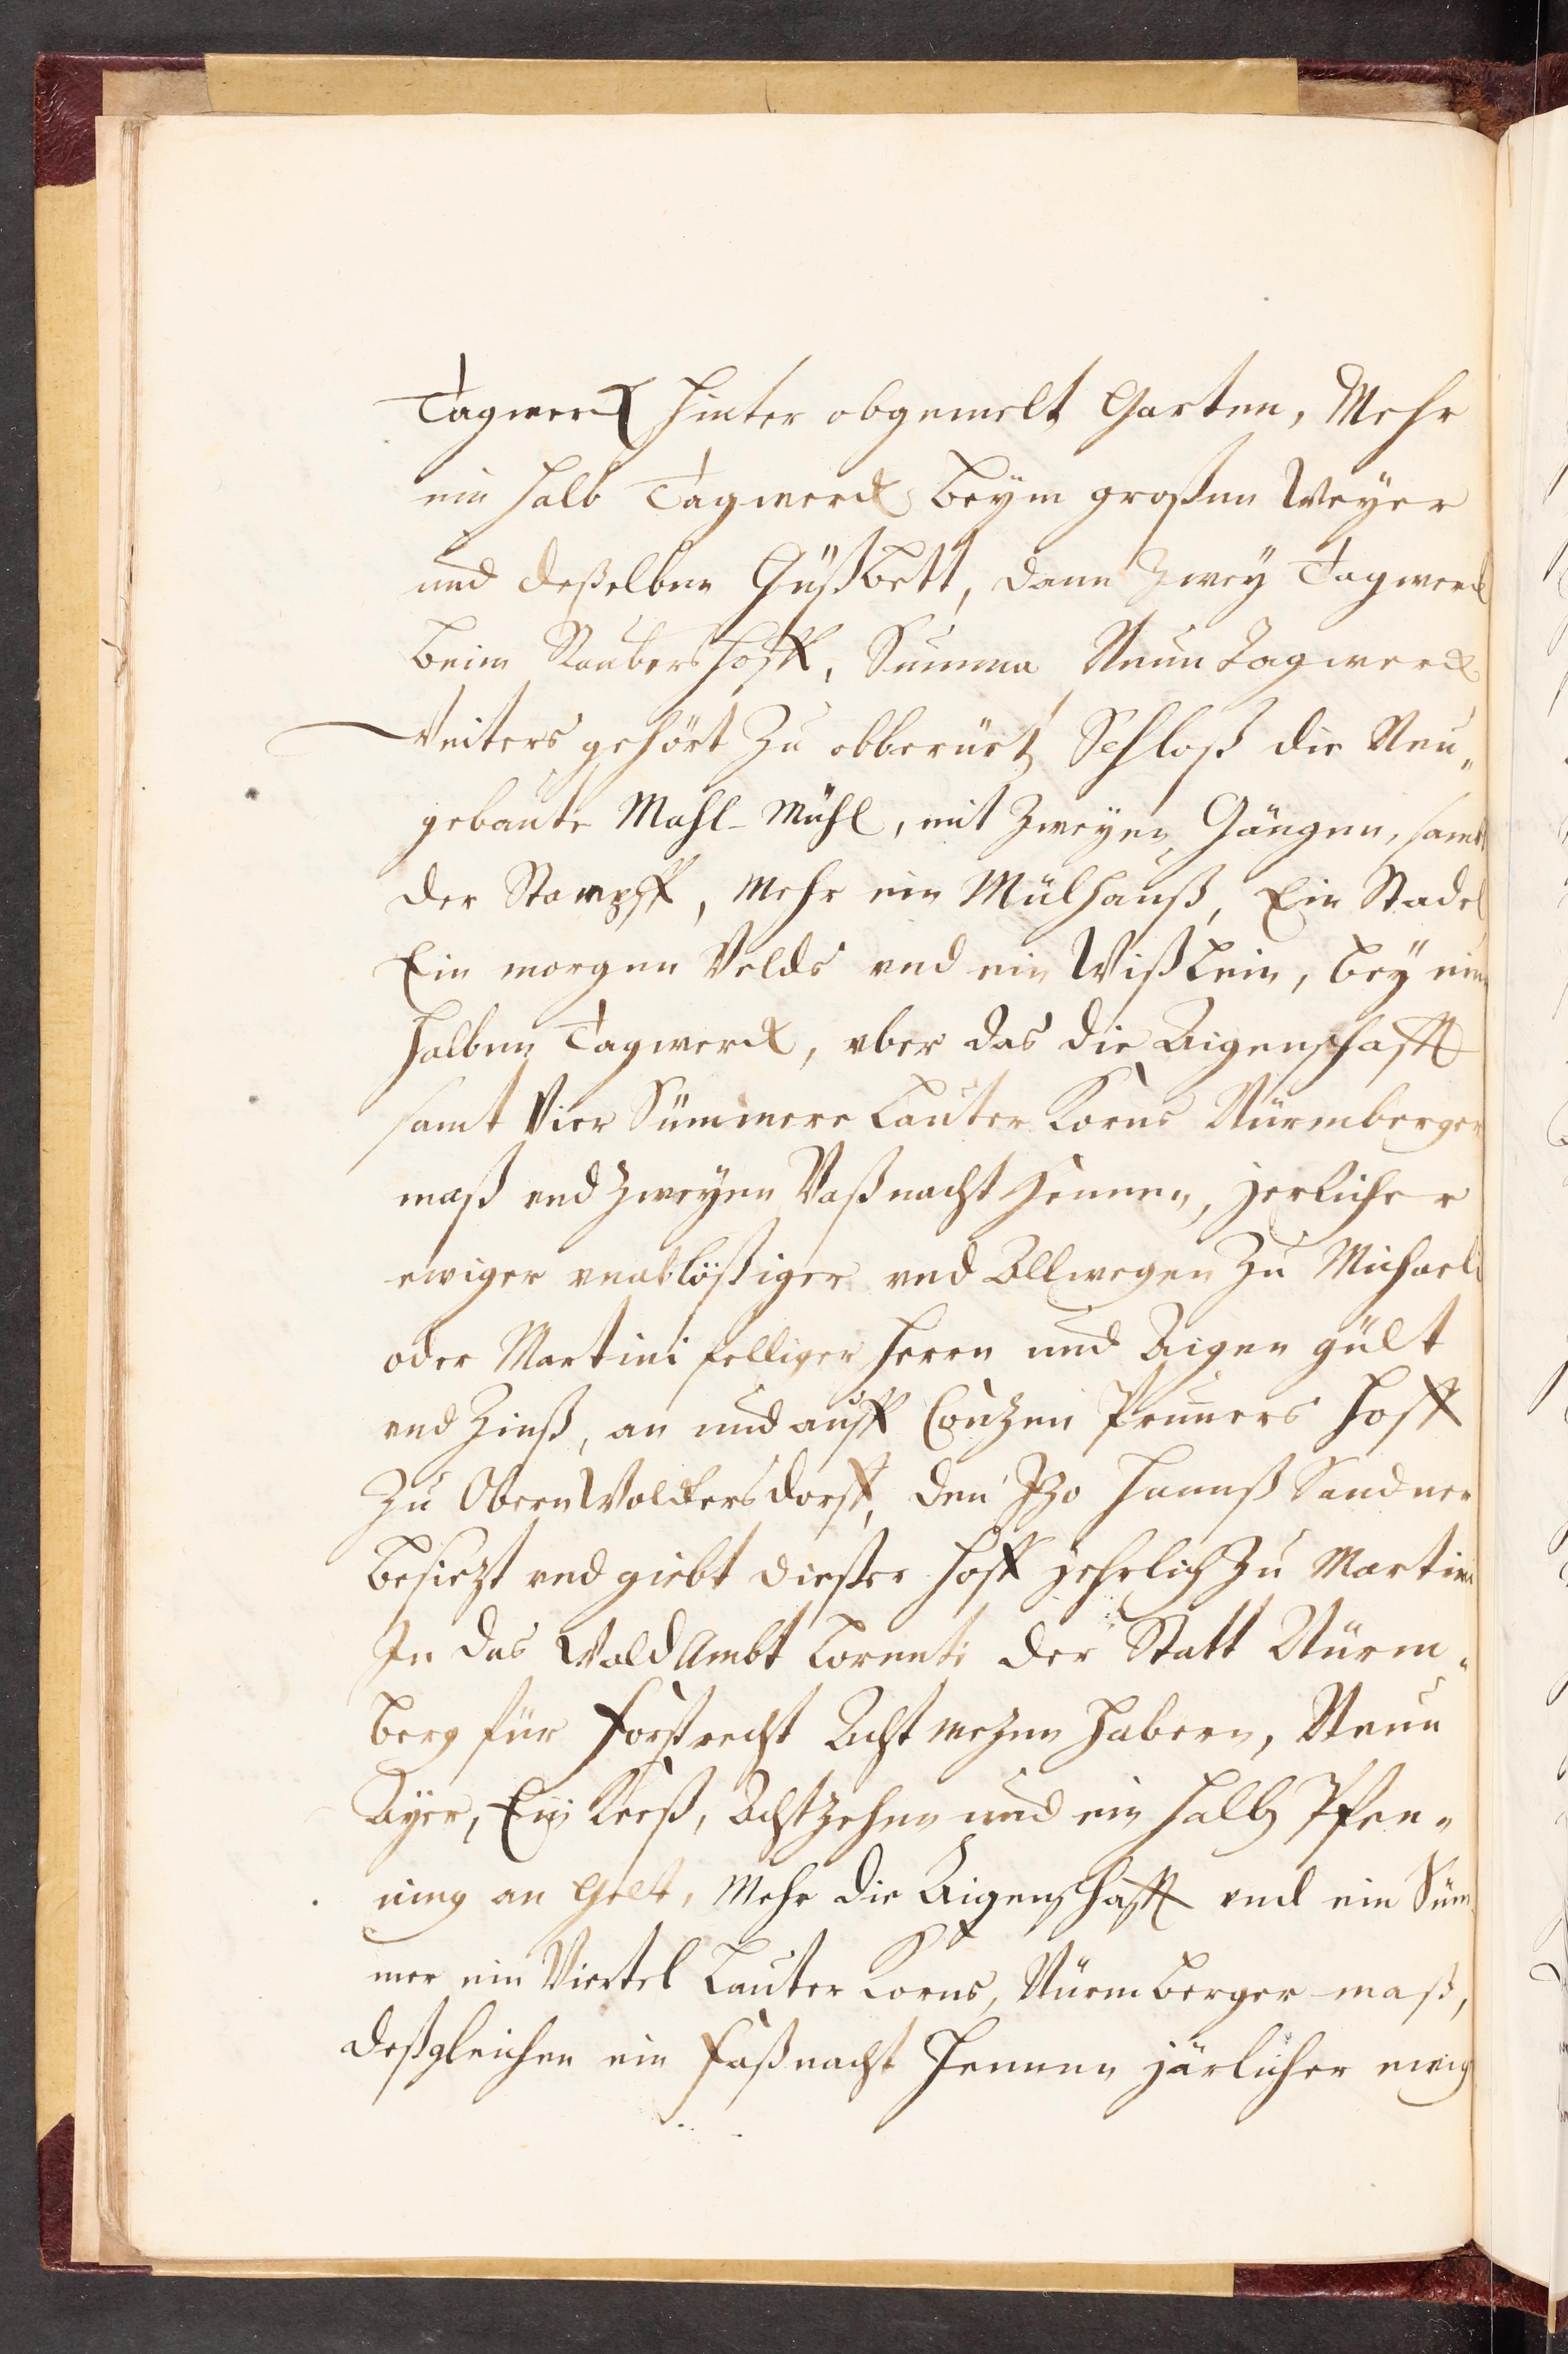 Tagwerck hinter obgemelt Garten, Mehr
ein halb Tagwerck beÿm großen Weÿer
und deßelben Güßbett, dann Zweÿ Tagwerck
beim Raubershoff, Summa Neun Tagwerck
Weiters gehört Zu obberürt Schloß die Neu„
gebaute Mahl-Mühl, mit Zweyen Gängen, samt
der Stampff, Mehr ein Mülhauß, Ein Stadel
Ein morgen Velds vnd ein Wißlein, beÿ einem
halben Tagwerck, vber das die Aigenschafft
samt Vier Sümmere Lauter Korns Nürmberger
maß vnd Zweyen Vaßnacht Hennen, jerlicher
ewiger vnablößiger vnd Allwegen Zu Michaeli
oder Martini felliger Herrn und Aigen gült
vnd Zinß, an und auff Conzen Pruners Hoff
Zu Obern Wolckersdorff, den Izo Hannß Sandner
besiezt vnd giebt dießer Hoff jehrlich Zu Martini
In das WaldAmbt Lorenti der Statt Nürm„
berg für Forstrecht Acht mezen Habern, Neun
Ayer, Ein Keeß, Achtzehen und ein halb Pfen„
ning an Gelt, Mehr die Aigenschafft vnd ein Süm
mer ein Viertel Lauter Korns, Nürmberger maß,
deßgleichen ein Faßnacht Hennen järlicher ewig